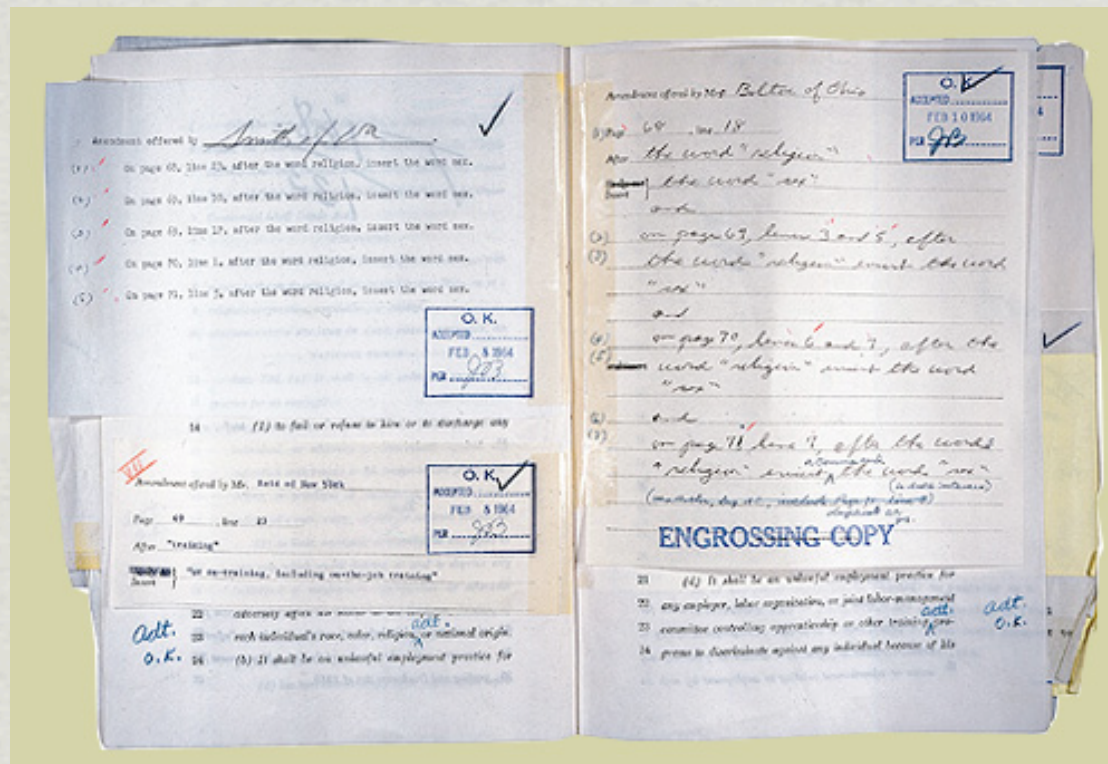 Amendment offered by Smith of Va
(1) On page 68, line 23, after the word religion, insert the word sex.
(2) On page 69, line 10, after the word religion, insert the word sex.
(3) On page 69, line 17, after the word religion, insert the word sex.
(4) On page 70, line 1, after the word religion, insert the word sex.
(5) On page 71, line 5, after the word religion, insert the word sex.
O. K.
ACCEPTED
FEB 8 1964
PER
14 (1) to fail or refuse to hire or to discharge any
VII
Amendment offered by Mr. Reid of New York
Page 69 Line 23
After "training"
Insert "or re-training, including on-the-job training"
O. K.
ACCEPTED
FEB 8 1964
PER
22 adversely affect his status
adt.
adt. 23 such individual's race, color, religion, or national origin.
O.K. 24 (b) It shall be an unlawful employment practice for
Amendment offered by Mrs Bolton of Ohio
(1) Page 68 line 18
After the word "religion"
Insert the word "sex"
and
(2) on page 69, lines 3 and 5, after
(3) the word "religion" insert the word
"sex"
and
(4) on page 70, lines 6 and 7, after the
(5) word "religion" insert the word
"sex"
(6) and
(7) on page 71 line 7, after the words
"religion" insert a comma and the word "sex"
O. K.
ACCEPTED
FEB 10 1964
PER
ENGROSSING COPY
21 (d) It shall be an unlawful employment practice for
22 any employer, labor organization, or joint labor-management
adt.
23 committee controlling apprenticeship or other training pro-
24 grams to discriminate against any individual because of his
adt.
O.K.